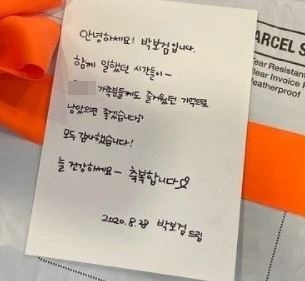 안녕하세요! 박보검입니다.
함께 일했던 시간들이 -
가족분들께도 즐거웠던 기억으로
남았으면 좋겠습니다♪
모두 감사했습니다!
늘 건강하세요 - 축복합니다♡
2020. 8. 28 박보검 드림
ARCEL S
ear Resistant
lear Invoice P
eatherproof